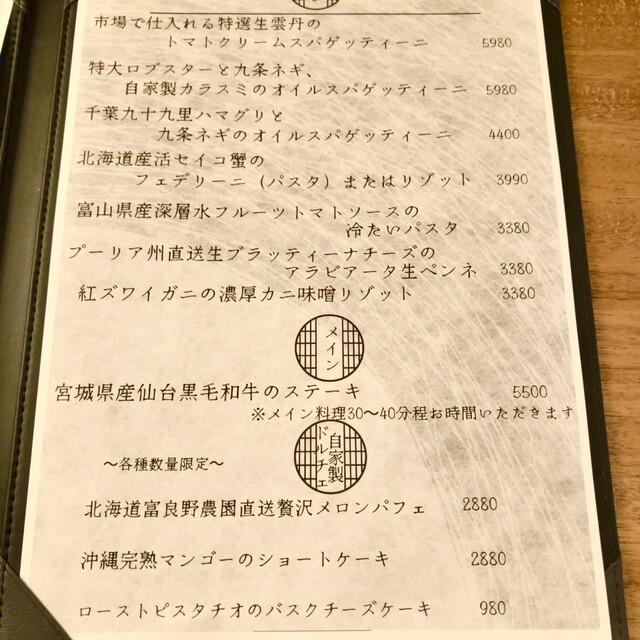 市場で仕入れる特選生雲丹の
トマトクリームスパゲッティーニ 5980
特大ロブスターと九条ネギ、
自家製カラスミのオイルスパゲッティーニ 5980
千葉九十九里ハマグリと
九条ネギのオイルスパゲッティーニ 4400
北海道産活セイコ蟹の
フェデリーニ（パスタ）またはリゾット 3990
富山県産深層水フルーツトマトソースの
冷たいパスタ 3380
プーリア州直送生ブラッティーナチーズの
アラビアータ生ペンネ 3380
紅ズワイガニの濃厚カニ味噌リゾット 3380
メイン
宮城県産仙台黒毛和牛のステーキ 5500
※メイン料理30〜40分程お時間いただきます
自家製
ドルチェ
〜各種数量限定〜
北海道富良野農園直送贅沢メロンパフェ 2880
沖縄完熟マンゴーのショートケーキ 2880
ローストピスタチオのバスクチーズケーキ 980